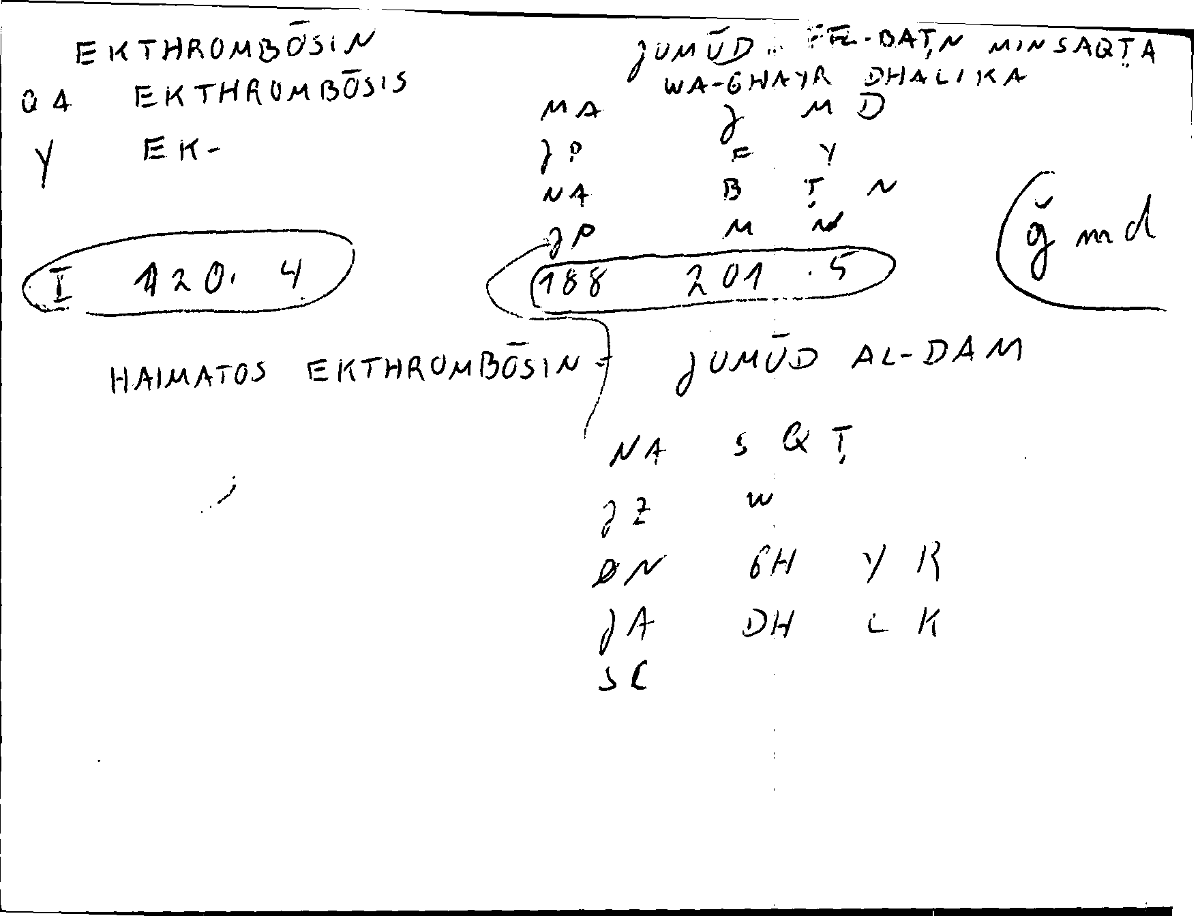 EKTHROMBŌSIN JUMŪD FĪL-BAṬN MIN SAQṬA
WA-GHAYR DHALIKA
Q4 EKTHROMBŌSIS
MA J M D
Y EK-
JP F Y
NA B Ṭ N
JP M N
ǧmd
I 120. 4 188 201 .5
HAIMATOS EKTHROMBŌSIN = JUMŪD AL-DAM
NA S Q Ṭ
JZ W
ØN GH Y R
JA DH L K